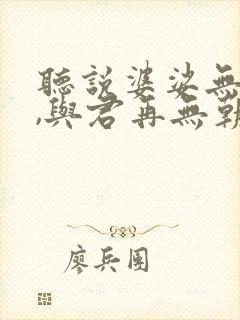 聽說婆娑無
,與君再無朝
廖兵團